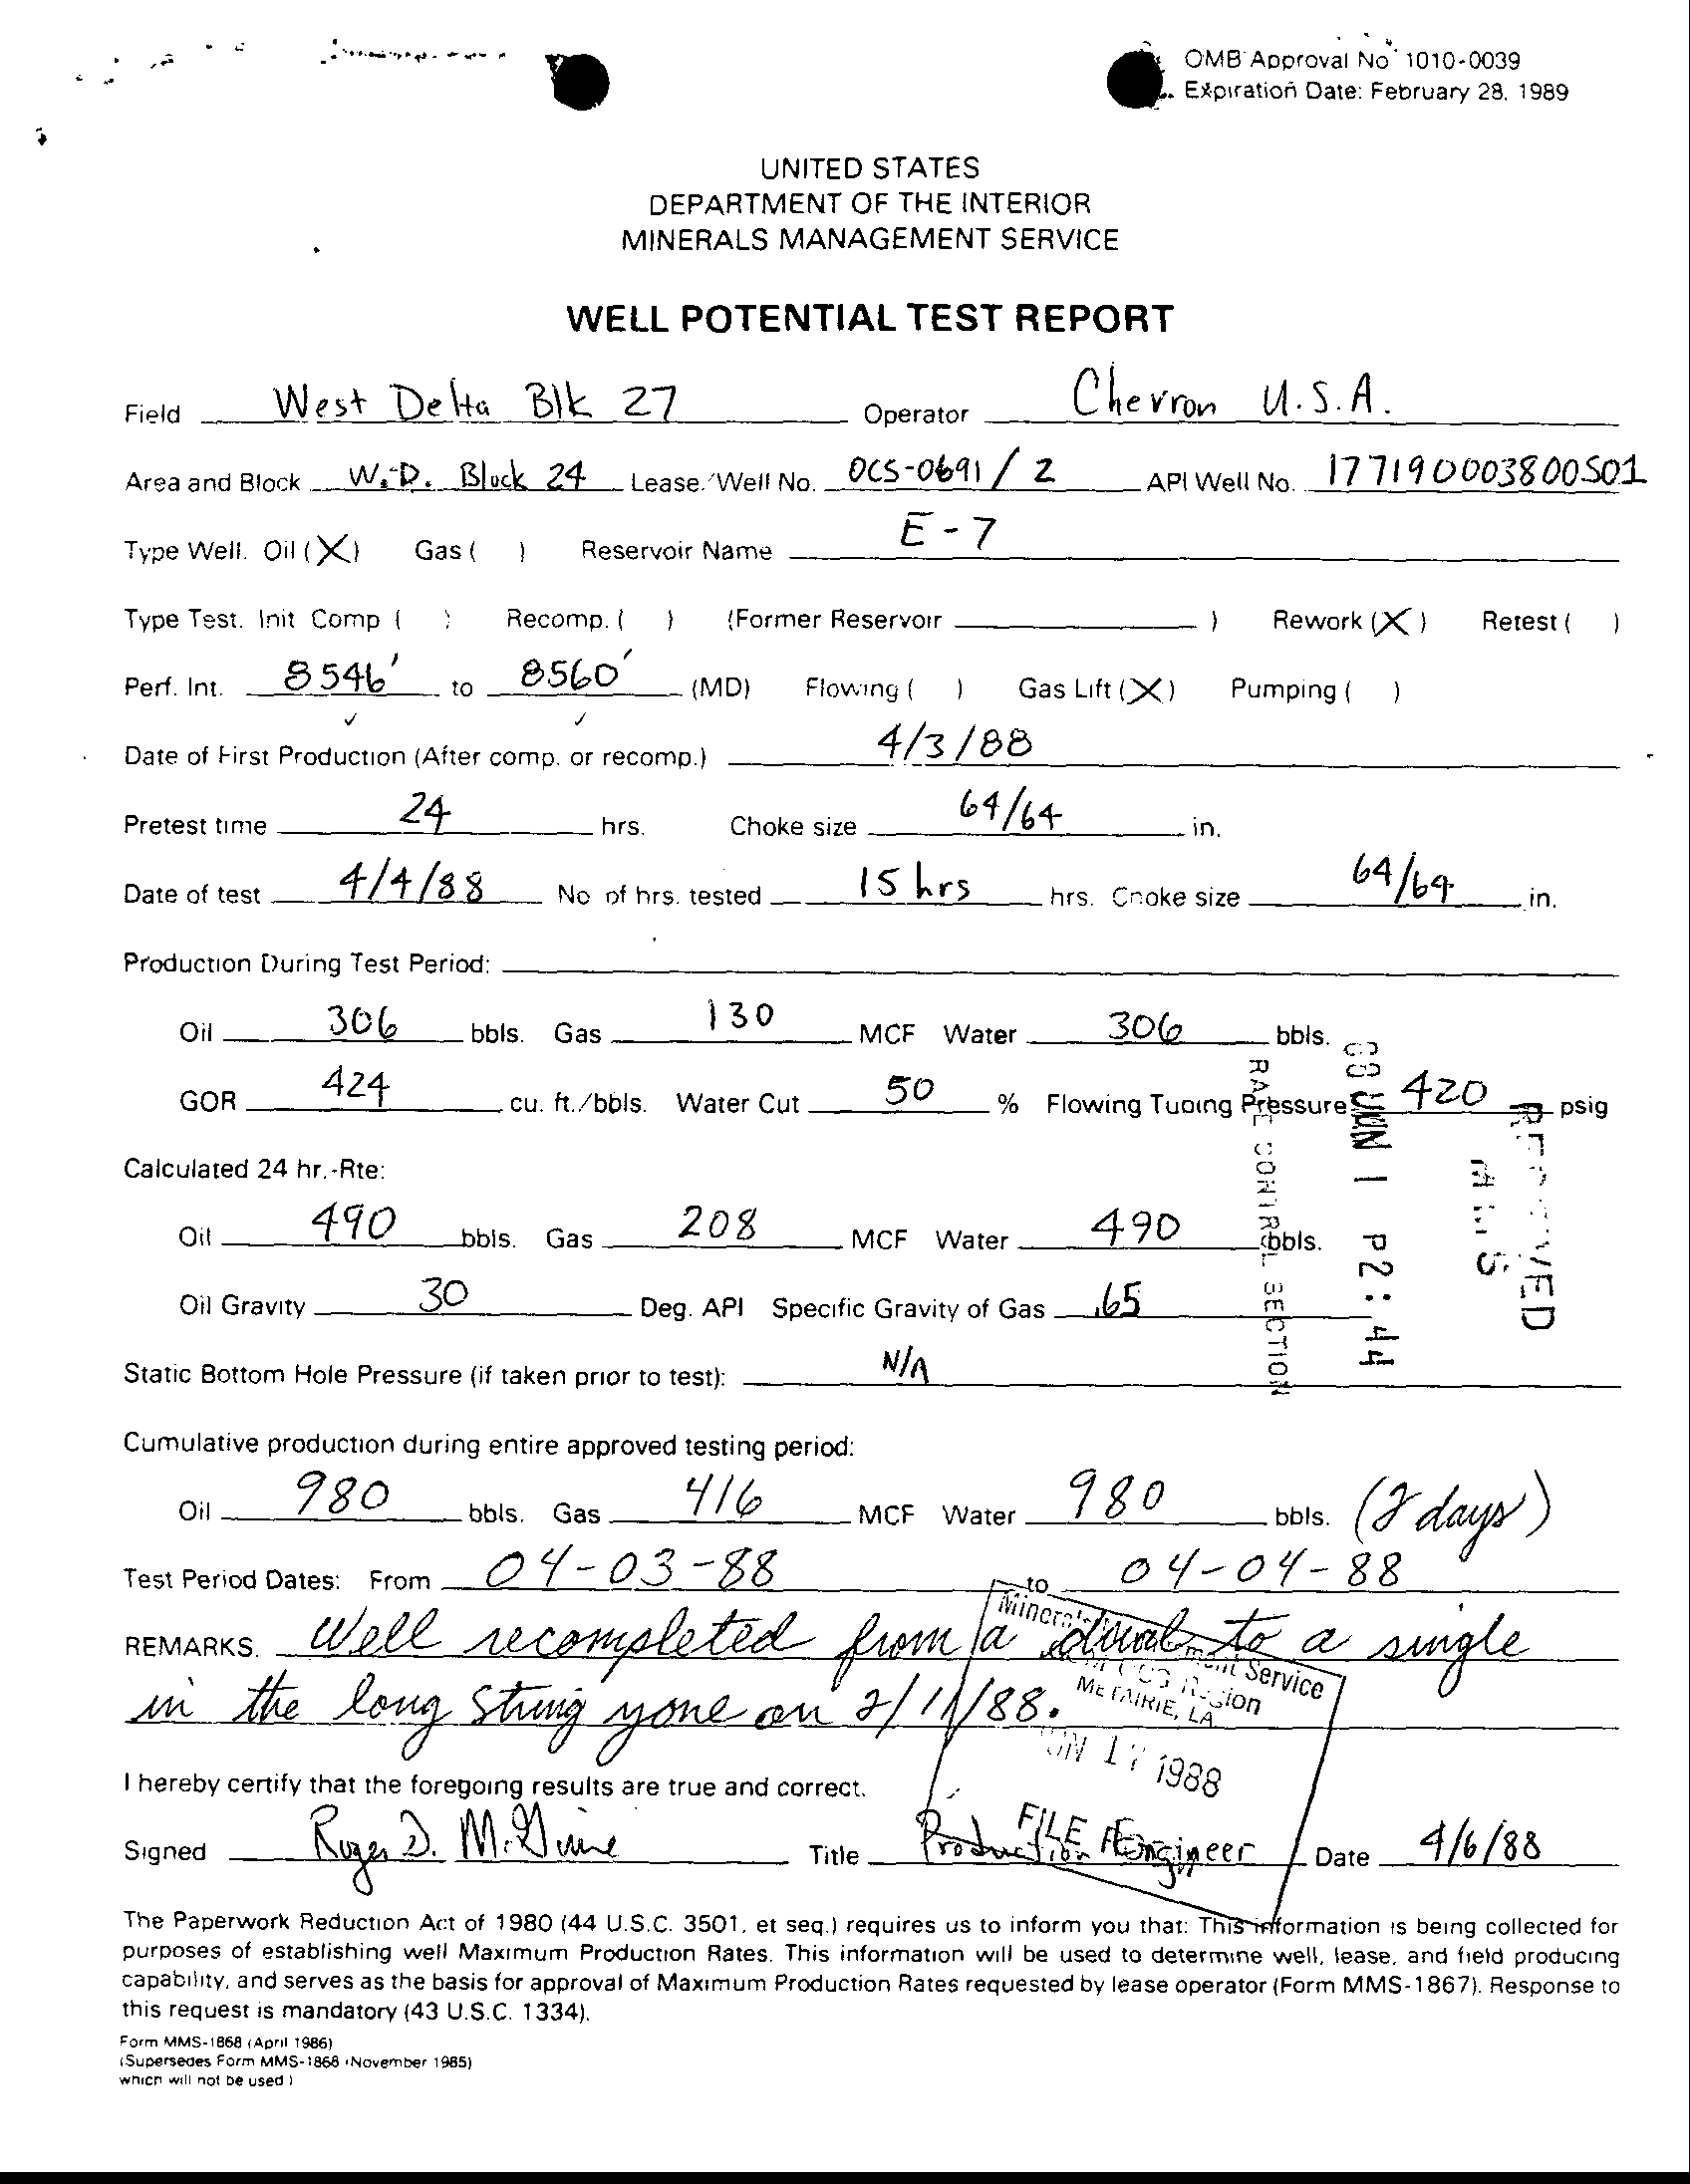 OMB Approval No 1010-0039
Expiration Date: February 28, 1989
UNITED STATES
DEPARTMENT OF THE INTERIOR
MINERALS MANAGEMENT SERVICE
WELL POTENTIAL TEST REPORT
Field West Delta Blk 27 Operator Chevron U.S.A.
Area and Block W.D. Block 24 Lease/Well No. OCS-0691 / 2 API Well No. 177190003800S01
Type Well. Oil (X) Gas ( ) Reservoir Name E-7
Type Test. Init Comp ( ) Recomp. ( ) (Former Reservoir ) Rework (X) Retest ( )
Perf. Int. 8546' to 8560' (MD) Flowing ( ) Gas Lift (X) Pumping ( )
Date of First Production (After comp. or recomp.) 4/3/88
Pretest time 24 hrs. Choke size 64/64 in.
Date of test 4/4/88 No of hrs. tested 15 hrs hrs. Choke size 64/64 in.
Production During Test Period:
Oil 306 bbls. Gas 130 MCF Water 306 bbls.
GOR 424 cu. ft./bbls. Water Cut 50 % Flowing Tubing Pressure 420 psig
Calculated 24 hr.-Rte:
Oil 490 bbls. Gas 208 MCF Water 490 bbls.
Oil Gravity 30 Deg. API Specific Gravity of Gas .65
Static Bottom Hole Pressure (if taken prior to test): N/A
Cumulative production during entire approved testing period:
Oil 980 bbls. Gas 416 MCF Water 980 bbls. (2 days)
Test Period Dates: From 04-03-88 to 04-04-88
REMARKS. Well recompleted from a dual to a single
in the long string zone on 2/11/88.
I hereby certify that the foregoing results are true and correct.
Signed Roger D. Title Production Engineer Date 4/6/88
The Paperwork Reduction Act of 1980 (44 U.S.C. 3501, et seq.) requires us to inform you that: This information is being collected for
purposes of establishing well Maximum Production Rates. This information will be used to determine well, lease, and field producing
capability, and serves as the basis for approval of Maximum Production Rates requested by lease operator (Form MMS-1867). Response to
this request is mandatory (43 U.S.C. 1334).
Form MMS-1868 (April 1986)
(Supersedes Form MMS-1868 (November 1985)
which will not be used)
SECTION
JUN 1 P2:44
Service
Region
METAIRIE, LA
1988
FILE